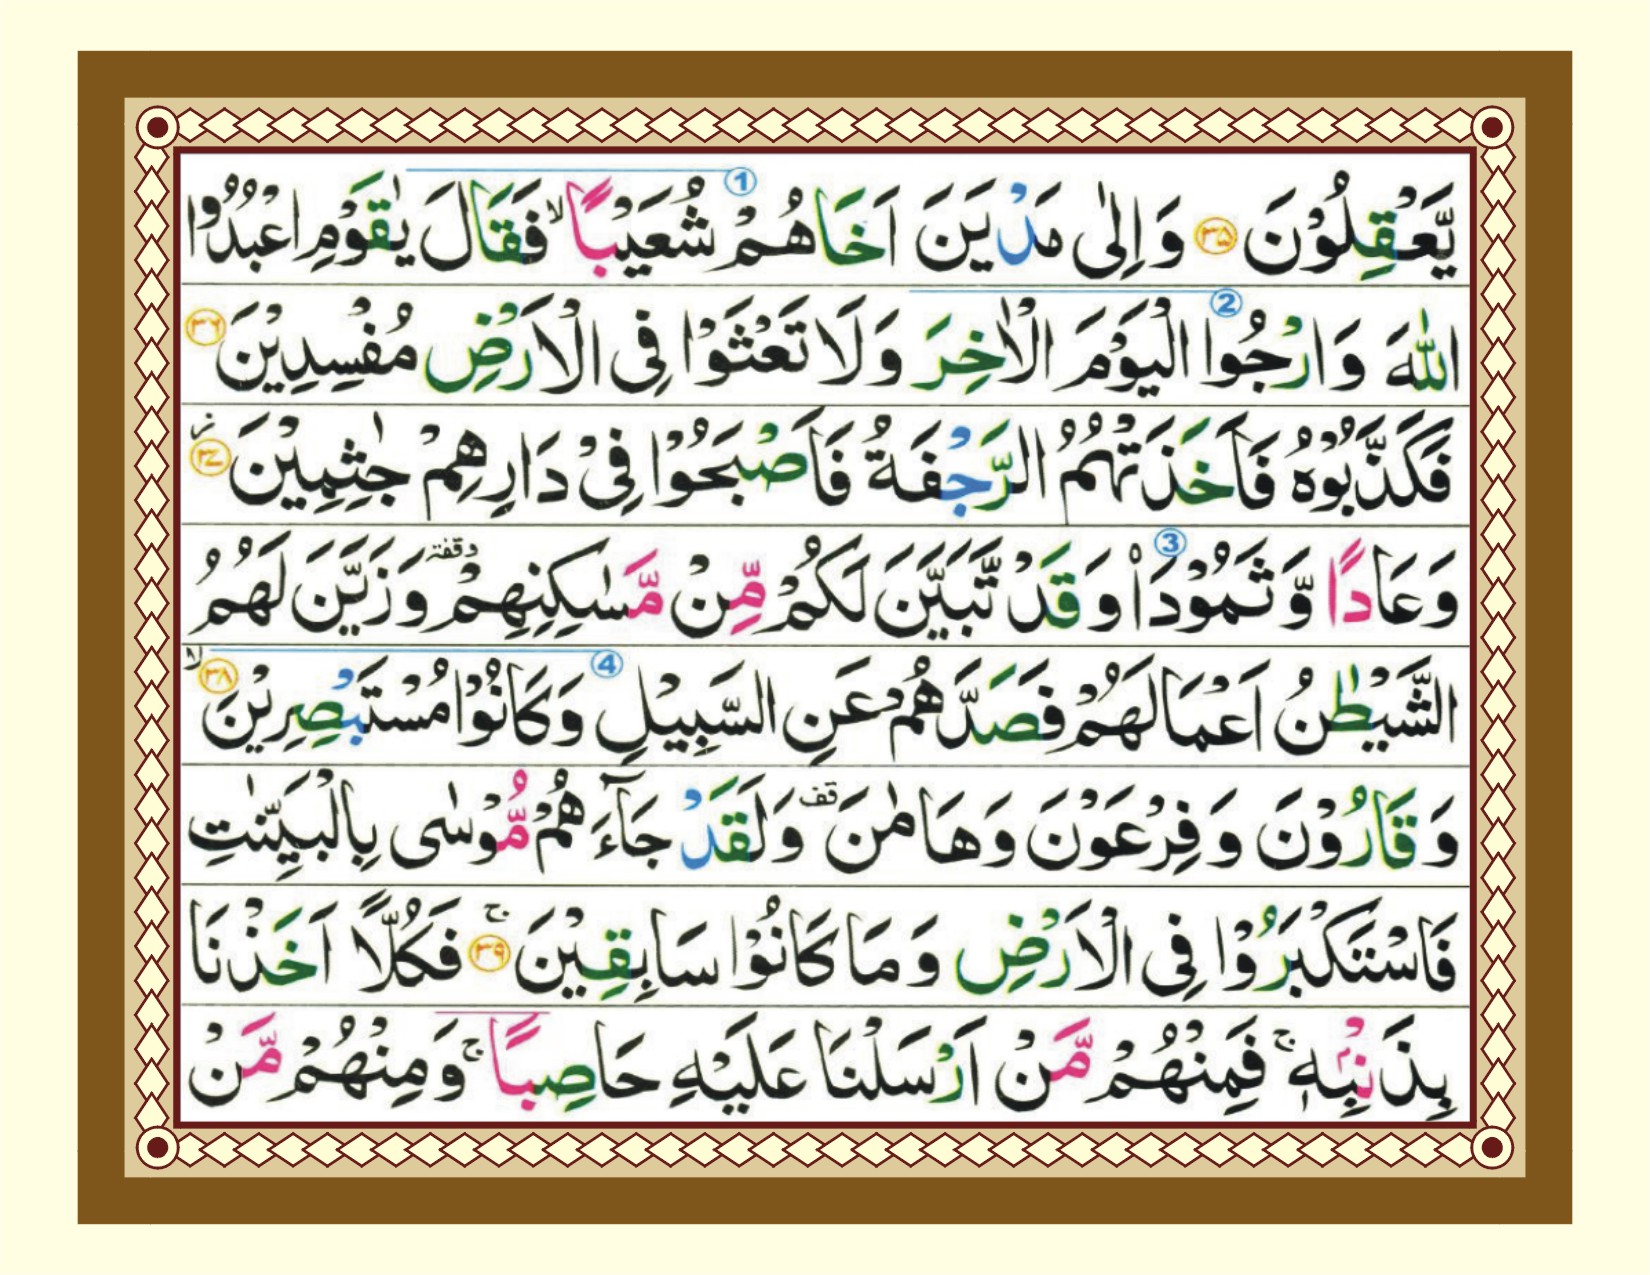 يَّعْقِلُوْنَ ۝۳۵ وَاِلٰى مَدْيَنَ اَخَاهُمْ ① شُعَيْبًا ۙ فَقَالَ يٰقَوْمِ اعْبُدُوا
اللّٰهَ وَارْجُوا ② الْيَوْمَ الْاٰخِرَ وَلَا تَعْثَوْا فِى الْاَرْضِ مُفْسِدِيْنَ ۝۳۶
فَكَذَّبُوْهُ فَاَخَذَتْهُمُ الرَّجْفَةُ فَاَصْبَحُوْا فِىْ دَارِهِمْ جٰثِمِيْنَ ۝۳۷ ز
وَعَادًا وَّثَمُوْدَا۟ ③ وَقَدْ تَّبَيَّنَ لَكُمْ مِّنْ مَّسٰكِنِهِمْ وقفة وَزَيَّنَ لَهُمُ
الشَّيْطٰنُ اَعْمَالَهُمْ فَصَدَّهُمْ عَنِ السَّبِيْلِ ④ وَكَانُوْا مُسْتَبْصِرِيْنَ ۝۳۸ ۙ
وَقَارُوْنَ وَفِرْعَوْنَ وَهَامٰنَ قف وَلَقَدْ جَآءَهُمْ مُّوْسٰى بِالْبَيِّنٰتِ
فَاسْتَكْبَرُوْا فِى الْاَرْضِ وَمَا كَانُوْا سَابِقِيْنَ ۝۳۹ ۚ فَكُلًّا اَخَذْنَا
بِذَنْۢبِهٖ ۚ فَمِنْهُمْ مَّنْ اَرْسَلْنَا عَلَيْهِ حَاصِبًا ۚ وَمِنْهُمْ مَّنْ